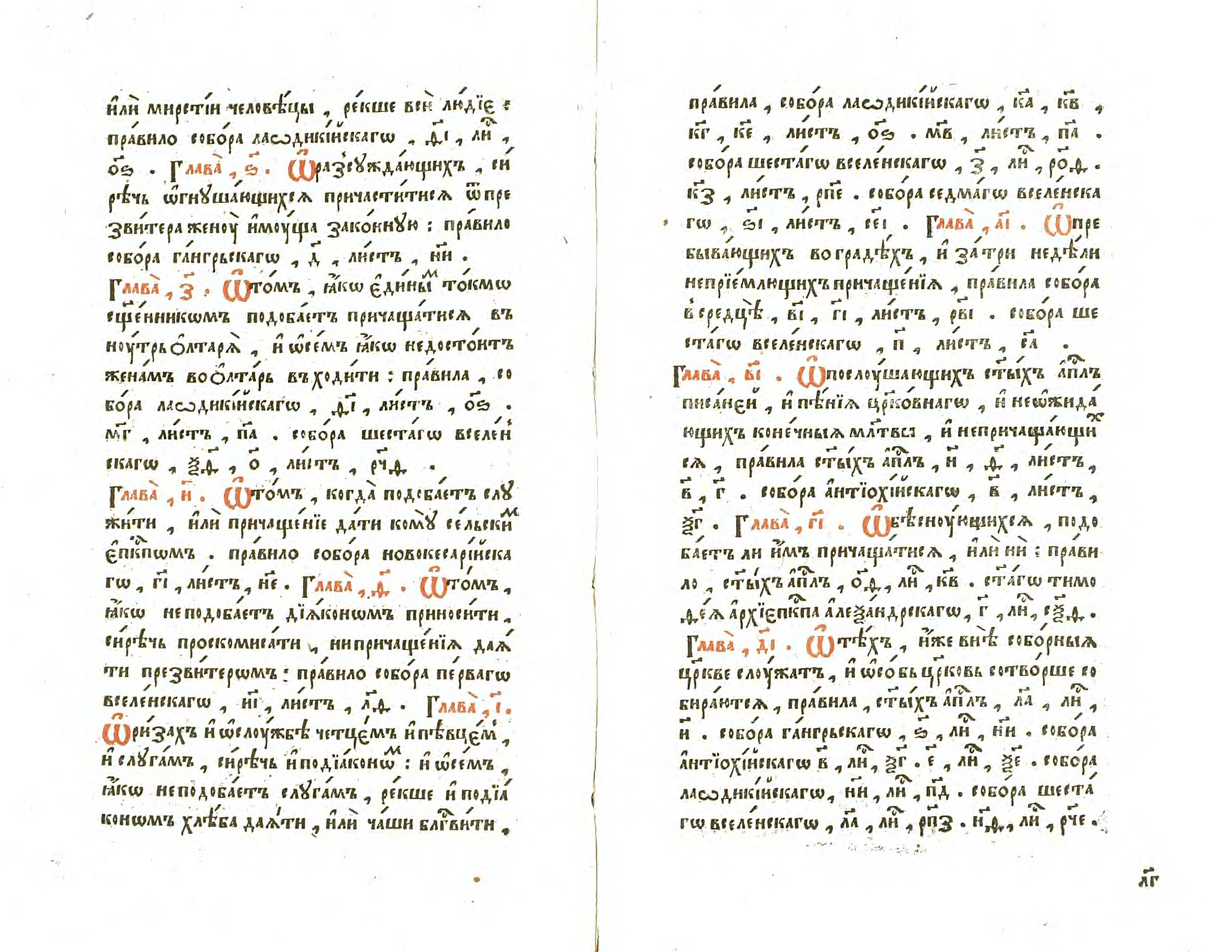 и҆лѝ мирстїи человѣ́цы , ре́кше всѝ лю́дїє :
пра́вило собо́ра лаѡдикі́йскагѡ , д҃і , ли̑ ,
о҃ѕ . Глава̀ , ѕ҃ . Ѡ҆ разсужда́ющихъ , си
рѣчь ѡ҆гнуша́ющихсѧ причасти́тисѧ ѿ пре
зви́тера женоу̀ и҆моуща зако́нную : пра́вило
собо́ра га́нгрьскагѡ , д҃ , ли́стъ , н҃и .
Глава̀ , з҃ . Ѡ҆ то́мъ , ꙗ҆́кѡ є҆ди́ныⷨ то́кмѡ
сщ҃е́нникѡмъ подоба́етъ причаща́тисѧ въ
ноу́трь ѻ҆лтарѧ̀ , и҆ ѡ҆ се́мъ ꙗ҆́кѡ недосто́итъ
жена́мъ во ѻ҆лта́рь въходи́ти : пра́вила , со
бо́ра лаѡдикі́йскагѡ , д҃і , ли́стъ , о҃ѕ .
м҃г , ли́стъ , п҃а . собо́ра шеста́гѡ вселе́н
скагѡ , ѯ҃д , о҃ , ли́стъ , рч҃д .
Глава̀ , и҃ . Ѡ҆ то́мъ , когда̀ подоба́етъ слꙋ
жи́ти , и҆лѝ причаще́нїе да́ти комꙋ̀ се́льскиⷨ
є҆пⷭ҇кпѡмъ . пра́вило собо́ра новокесарі́йска
гѡ , г҃і , ли́стъ , н҃е . Глава̀ , ѳ҃ . Ѡ҆ то́мъ ,
ꙗ҆́кѡ не подоба́етъ дїѧ́конѡмъ приноси́ти ,
си́рѣчь проскомиса́ти , ни причаще́нїѧ даѧ́
ти презви́терѡмъ : пра́вило собо́ра пе́рвагѡ
вселе́нскагѡ , и҃і , ли́стъ , л҃д . Глава̀ , і҃ .
Ѡ҆ ри́захъ и҆ ѡ҆ слоу́жбѣ четце́мъ и҆ пѣвце́мъ ,
и҆ слꙋга́мъ , си́рѣчь и҆ подїа́конѡⷨ : и҆ ѡ҆ се́мъ ,
ꙗ҆́кѡ не подоба́етъ слꙋга́мъ , ре́кше и҆ подїа́
конѡмъ хлѣ́ба даѧ́ти , и҆лѝ ча́ши блгⷭ҇ви́ти ,
пра́вила , собо́ра лаѡдикі́йскагѡ , к҃а , к҃в ,
к҃г , к҃е , ли́стъ , о҃ѕ . м҃в , ли́стъ , п҃а .
собо́ра шеста́гѡ вселе́нскагѡ , з҃ , ли̑ , ро҃д .
к҃з , ли́стъ , рп҃е . собо́ра седма́гѡ вселе́нска
гѡ , ѕ҃і , ли́стъ , се҃і . Глава̀ , а҃і . Ѡ҆ пре
быва́ющихъ во градѣ́хъ , и҆ за трѝ недѣ́ли
непрїе́млющихъ причаще́нїѧ , пра́вила собо́ра
в середцѣ̀ , в҃і , г҃і , ли́стъ , рв҃і . собо́ра ше
ста́гѡ вселе́нскагѡ , п҃ , ли́стъ , с҃а .
Глава̀ , в҃і . Ѡ҆ послоу́шающихъ ст҃ы́хъ а҆пⷭ҇лъ
писа́нєй , и҆ пѣ́нїѧ цр҃ко́внагѡ , и҆ не ѡ҆жида́
ющихъ коне́чныѧ мл҃твы , и҆ непричаща́ющиⷯ
сѧ , пра́вила ст҃ы́хъ а҆пⷭ҇лъ , и҃ , ѳ҃ , ли́стъ ,
в҃ , г҃ . собо́ра а҆нтїохі́йскагѡ , в҃ , ли́стъ ,
ѯ҃г . Глава̀ , г҃і . Ѡ҆ бѣсноу́ющихсѧ , подо
ба́етъ ли и҆̀мъ причаща́тисѧ , и҆лѝ нѝ : пра́ви
ло , ст҃ы́хъ а҆пⷭ҇лъ , о҃ѳ , ли̑ , к҃в . ст҃а́гѡ тимо
ѳе́ѧ а҆рхїєпⷭ҇кпа а҆леѯа́ндрскагѡ , г҃ , ли̑ , сѯ҃д .
Глава̀ , д҃і . Ѡ҆ тѣ́хъ , и҆̀же внѣ̀ собо́рныѧ
цр҃кве слоу́жатъ , и҆ ѡ҆со́бь цр҃ковь сотво́рше со
бира́ютсѧ , пра́вила , ст҃ы́хъ а҆пⷭ҇лъ , л҃а , ли̑ ,
и҃ . собо́ра га́нгрьскагѡ , ѕ҃ , ли̑ , н҃и . собо́ра
а҆нтїохі́йскагѡ в҃ , ли̑ , ѯ҃г . є҃ , ли̑ , ѯ҃е . собо́ра
лаѡдикі́йскагѡ , н҃и , ли̑ , п҃д . собо́ра шеста́
гѡ вселе́нскагѡ , л҃а , ли̑ , рп҃з . н҃ѳ , ли̑ , рч҃е .
л҃г